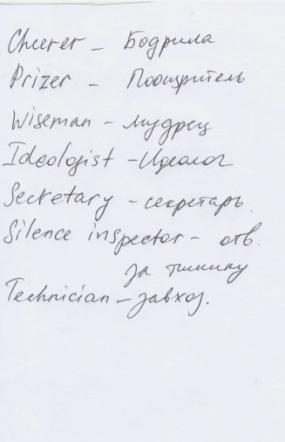 Cheerer - Бодрила
Prizer - Поощритель
Wiseman - мудрец
Ideologist - Идеолог
Secretary - секретарь.
Silence inspector - отв.
за тишину
Technician - завхоз.